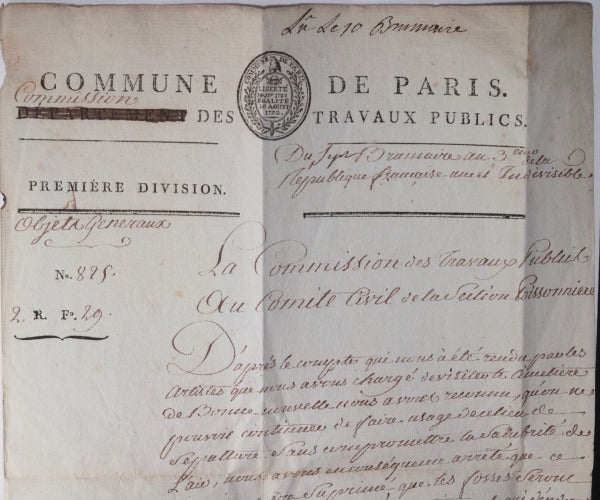 Lu Le 10 Brumaire
COMMUNE DE PARIS.
LIBERTÉ
EGALITÉ
10 AOUST
1792
Commission
DÉPARTEMENT DES TRAVAUX PUBLICS.
Du Brumaire au 3eme de la
République française une et Indivisible
PREMIÈRE DIVISION.
Objets Generaux
No. 825.
2 R. Fo. 29
La Commission des Travaux Publics
Au Comité Civil de la Section Poissonniere
D'après le compte qui nous à été rendu par les
Artistes que nous avons chargé de visiter le Cimetière
de Bonne nouvelle nous avons reconnu, qu'on ne
pouvoit continuer de faire usage de ce lieu de
Sépulture Sans compromettre la Salubrité de
L'air, nous avons en conséquence arrêté que ce
Suprimé que les fosses Seront